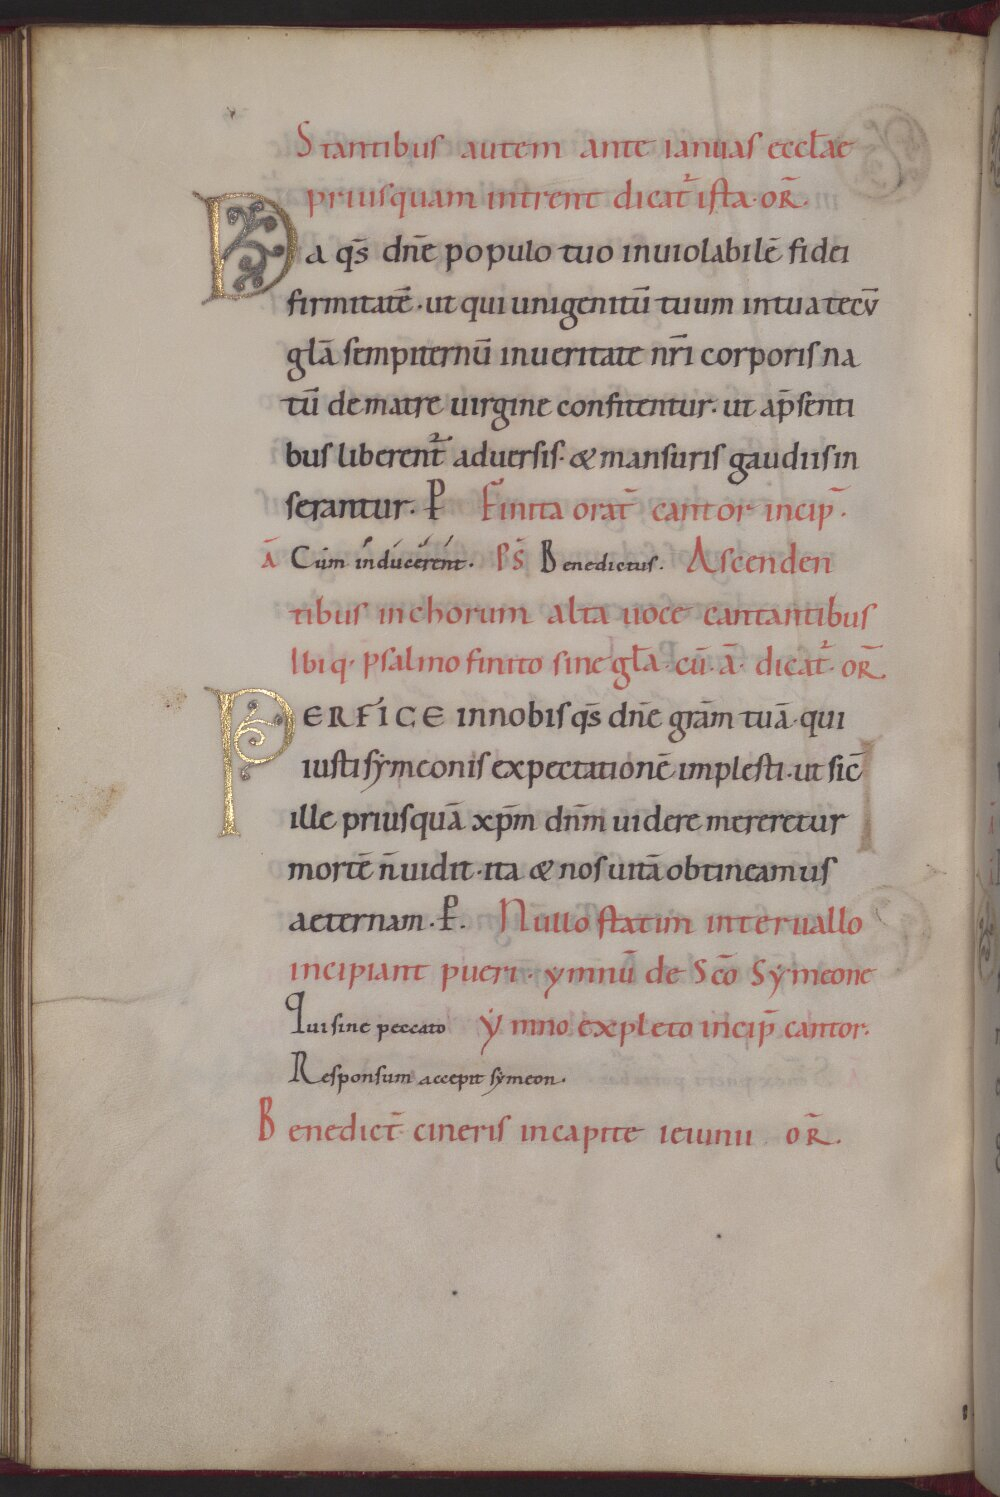 Stantibus autem ante ianuas eccl̄ae
priusquam intrent dicat᷑ ista · or̄.
Da qs̄ dn̄e populo tuo inuiolabilē fidei
firmitatē · ut qui unigenitū tuum in tua tecū
glā sempiternū in ueritate nr̄i corporis na
tū de matre uirgine confitentur · ut a p̄senti
bus liberent᷑ aduersis · & mansuris gaudiis in
serantur · P̄ Finita orat̄ cantor incip̄ ·
ā Cúm índúcérént · Ps̄ Benedictus · Ascenden
tibus in chorum alta uoce cantantibus
Ibiq· psalmo finito sine gl̄a · cū · ā · dicat᷑ · or̄
PERFICE in nobis qs̄ dn̄e grām tuā · qui
iusti sẏmeonis expectationē implesti · ut sic̄
ille priusquā xp̄m dn̄m uidere mereretur
mortē n̄ uidit · ita & nos uitā obtineamus
aeternam · P̄. Nullo statim interuallo
incipiant pueri · ymnū de Sc̄o Sẏmeone
Qui sine peccato ẏmno expleto incip̄ cantor ·
Responsum accepit sẏmeon ·
Benedict̄ cineris in capite ieiunii or̄ .